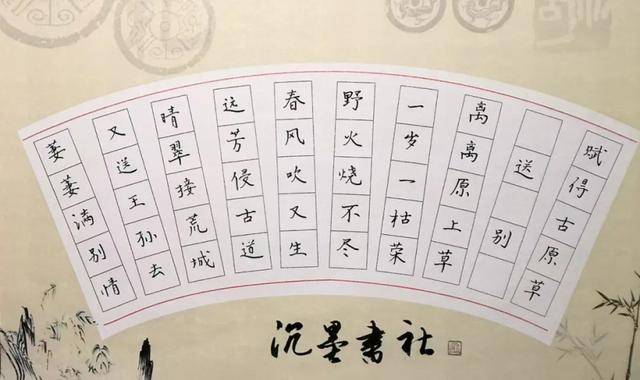 赋得古原草
送别
离离原上草
一岁一枯荣
野火烧不尽
春风吹又生
远芳侵古道
晴翠接荒城
又送王孙去
萋萋满别情
沉墨书社